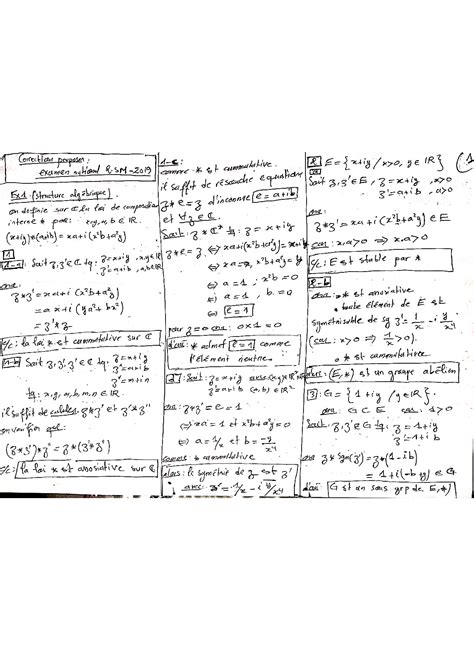 Correction proposée
examen national 2-SM-2019
Ex1 (structure algébrique)
on définie sur ℂ la loi de composition
interne * par: x,y,a,b ∈ ℝ.
(x+iy)*(a+ib) = xa+i(x²b+a²y)
1
1-a: Soit z,z'∈ℂ tq: z=x+iy, x,y∈ℝ
z'=a+ib, a,b∈ℝ
ona:
z*z' = xa+i(x²b+a²y)
= ax+i(ya²+bx²)
= z'*z
c/c: la loi * est commutative sur ℂ
1-b Soit z,z',z''∈ℂ tq z=x+iy
z'=a+ib
z''=m+in
tq: x,y,a,b,m,n∈ℝ
il suffit de calculer z*z' et z'*z''
on vérifie que:
(z*z')*z'' = z*(z'*z'')
c/c: la loi * est associative sur ℂ
1-c:
comme * est commutative.
il suffit de résoudre l'équation
z*e=z d'inconnue e=a+ib
et ∀z∈ℂ.
Soit: z∈ℂ* tq: z=x+iy
z*e=z ⇔ xa+i(x²b+a²y)=x+iy
⇔ xa=x, x²b+a²y=y
⇔ a=1, x²b=0
⇔ a=1, b=0
⇔ e=1
pour z=0 ona: 0*1=0
d'où: * admet e=1 comme
l'élément neutre.
Soit: z=x+iy avec (x,y)∈ℝ²
z'=a+ib (a,b)∈ℝ²
ona: z*z'=e=1
⇔ xa=1 et x²b+a²y=0
⇔ a=1/x et b=-y/x⁴
comme * commutative
alors: le symétrie de z est z'
avec z'=1/x - i y/x⁴
2 E={x+iy / x>0, y∈ℝ}
a
Soit z,z'∈E, z=x+iy x>0
z'=a+ib, a>0
ona:
z*z'=xa+i(x²b+a²y)∈E
car: x,a>0 ⇒ xa>0
c/c: E est stable par *
2-b
ona: * est associative
toute élément de E est
symétrisable de sy z'=1/x - i y/x⁴
(car: x>0 ⇒ 1/x>0).
* est commutative
alors: (E,*) est un groupe abélien
3: G={1+iy / y∈ℝ}.
ona: G⊂E car. 1>0
soit: z,z'∈G tq: z=1+iy
z'=1+ib
ona z*sym(z')=z*(1-ib)
= 1+i(-b+y)∈G
d'où G est un sous grp de E,*)